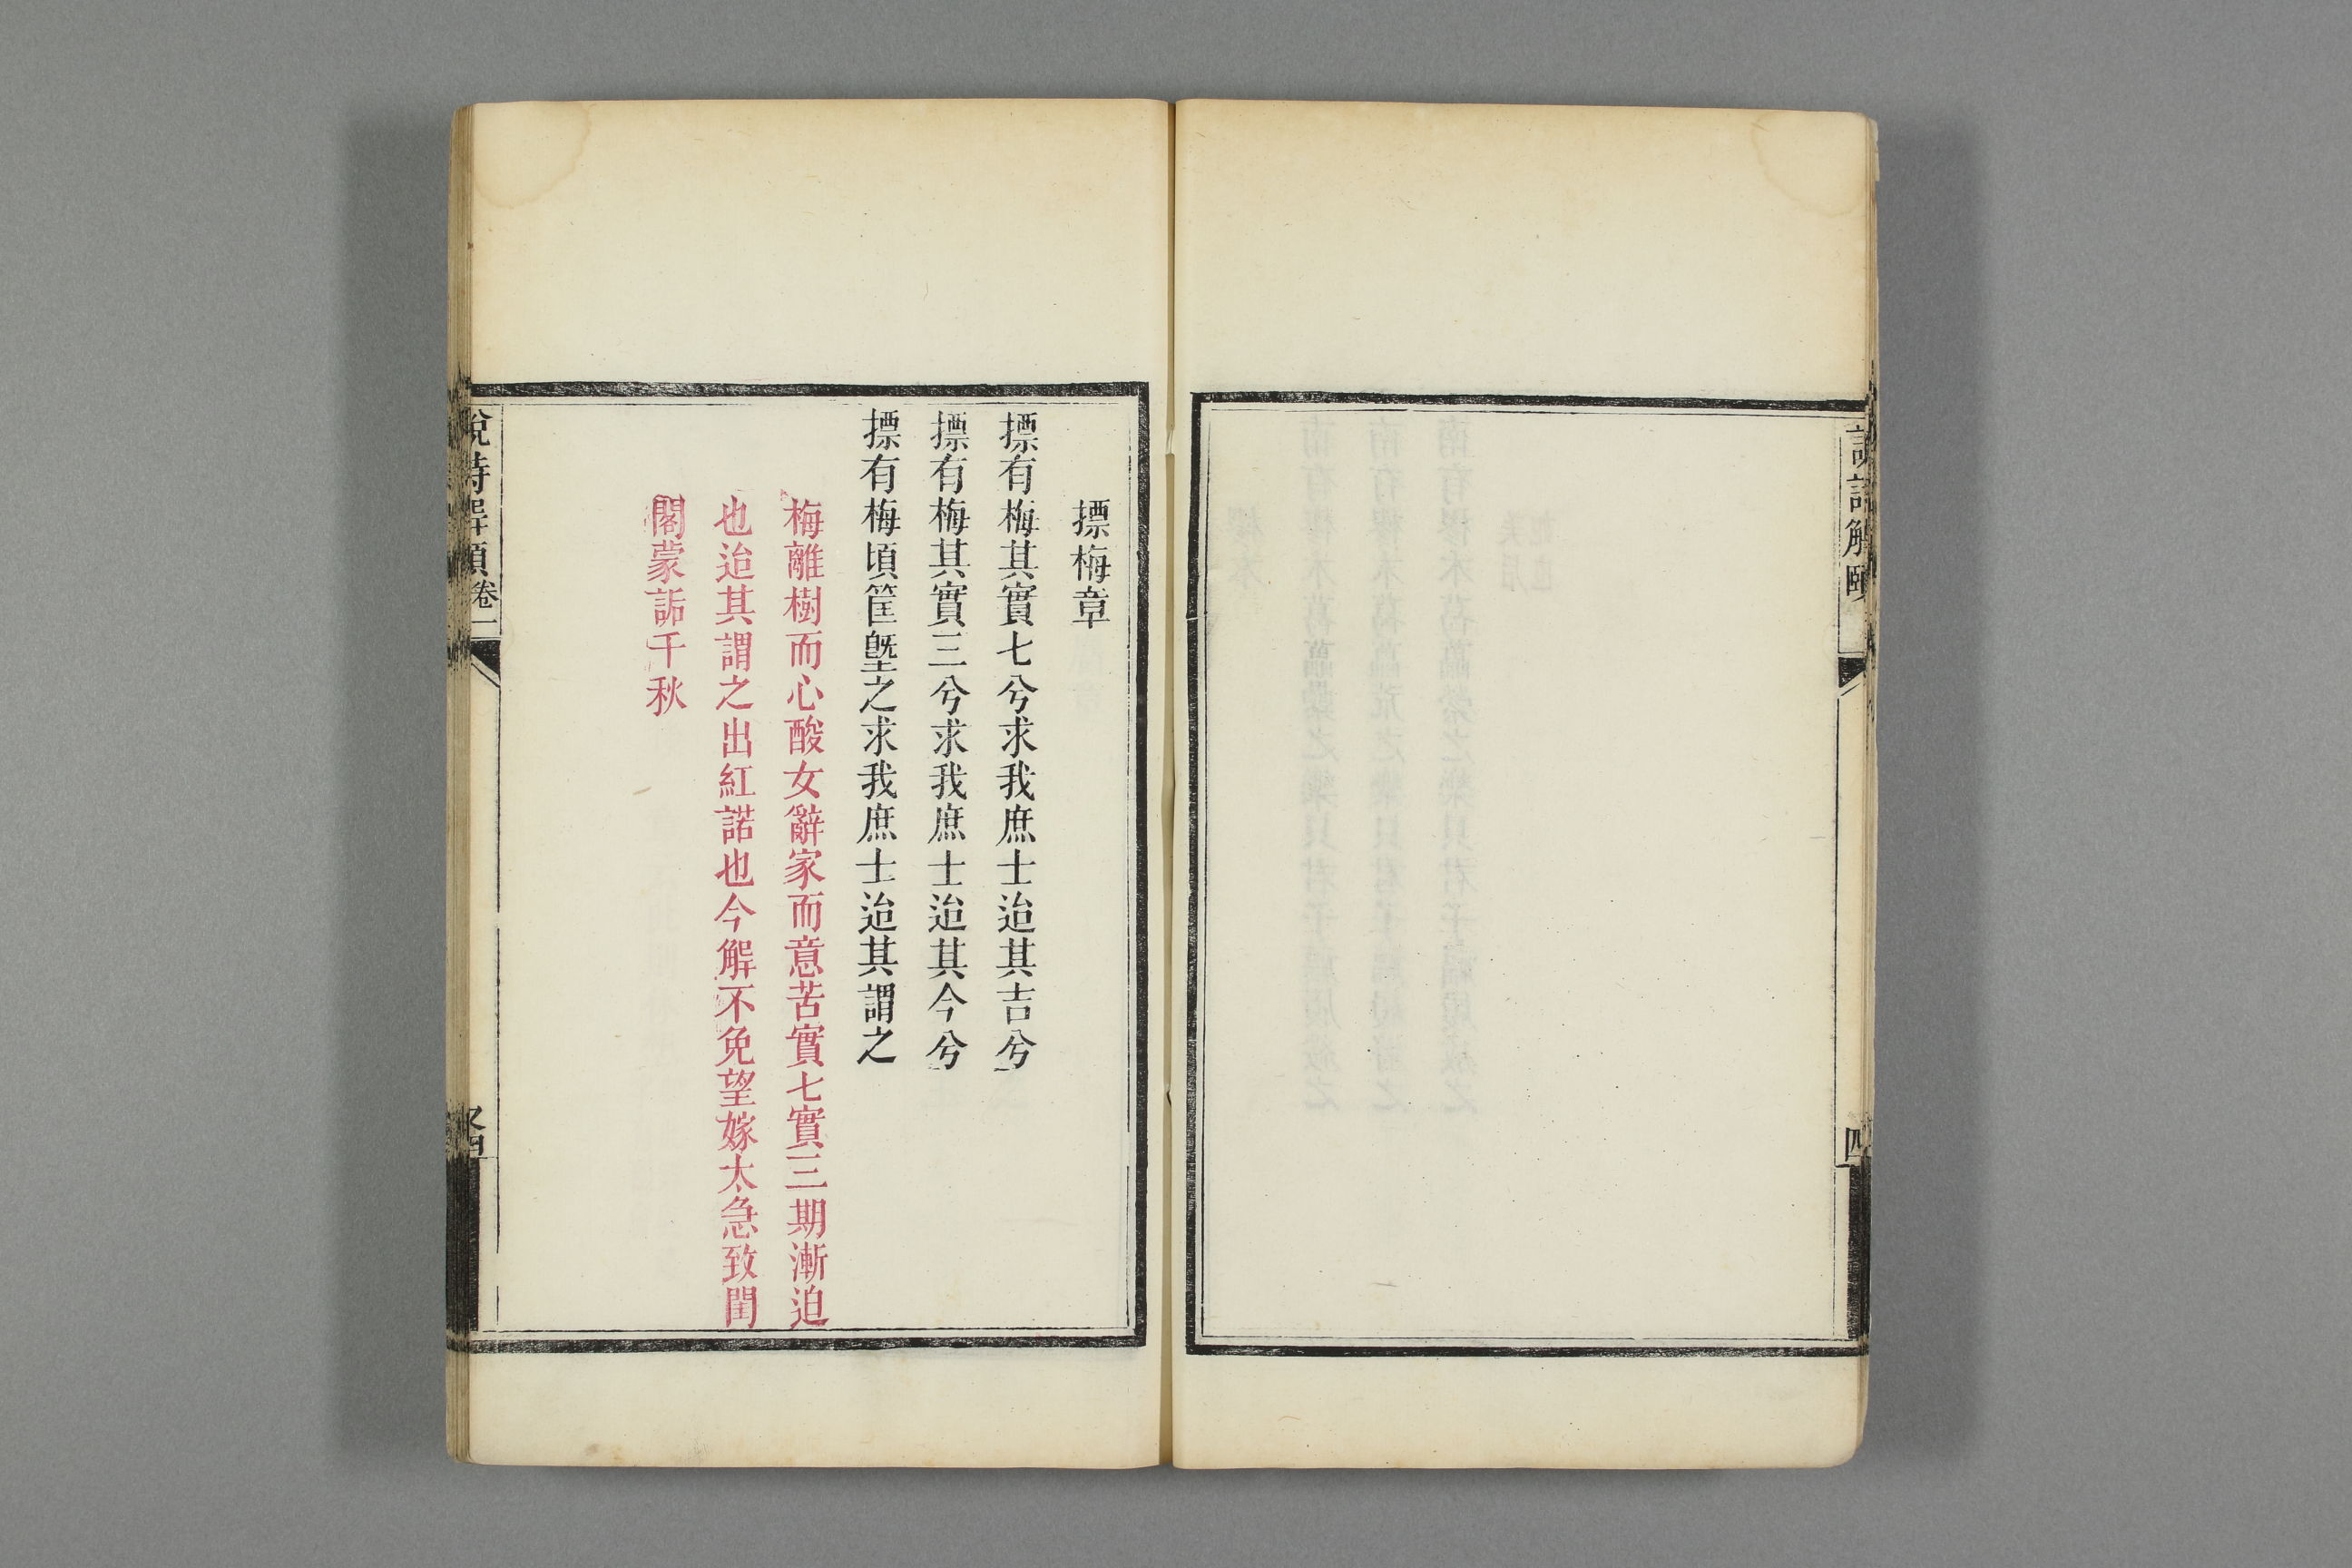 說詩解頤
四
摽梅章
摽有梅其實七兮求我庶士迨其吉兮
摽有梅其實三兮求我庶士迨其今兮
摽有梅頃筐塈之求我庶士迨其謂之
梅離樹而心酸女辭家而意苦實七實三期漸迫
也迨其謂之出紅諾也今解不免望嫁太急致閨
閣蒙詬千秋
說詩解頤卷一